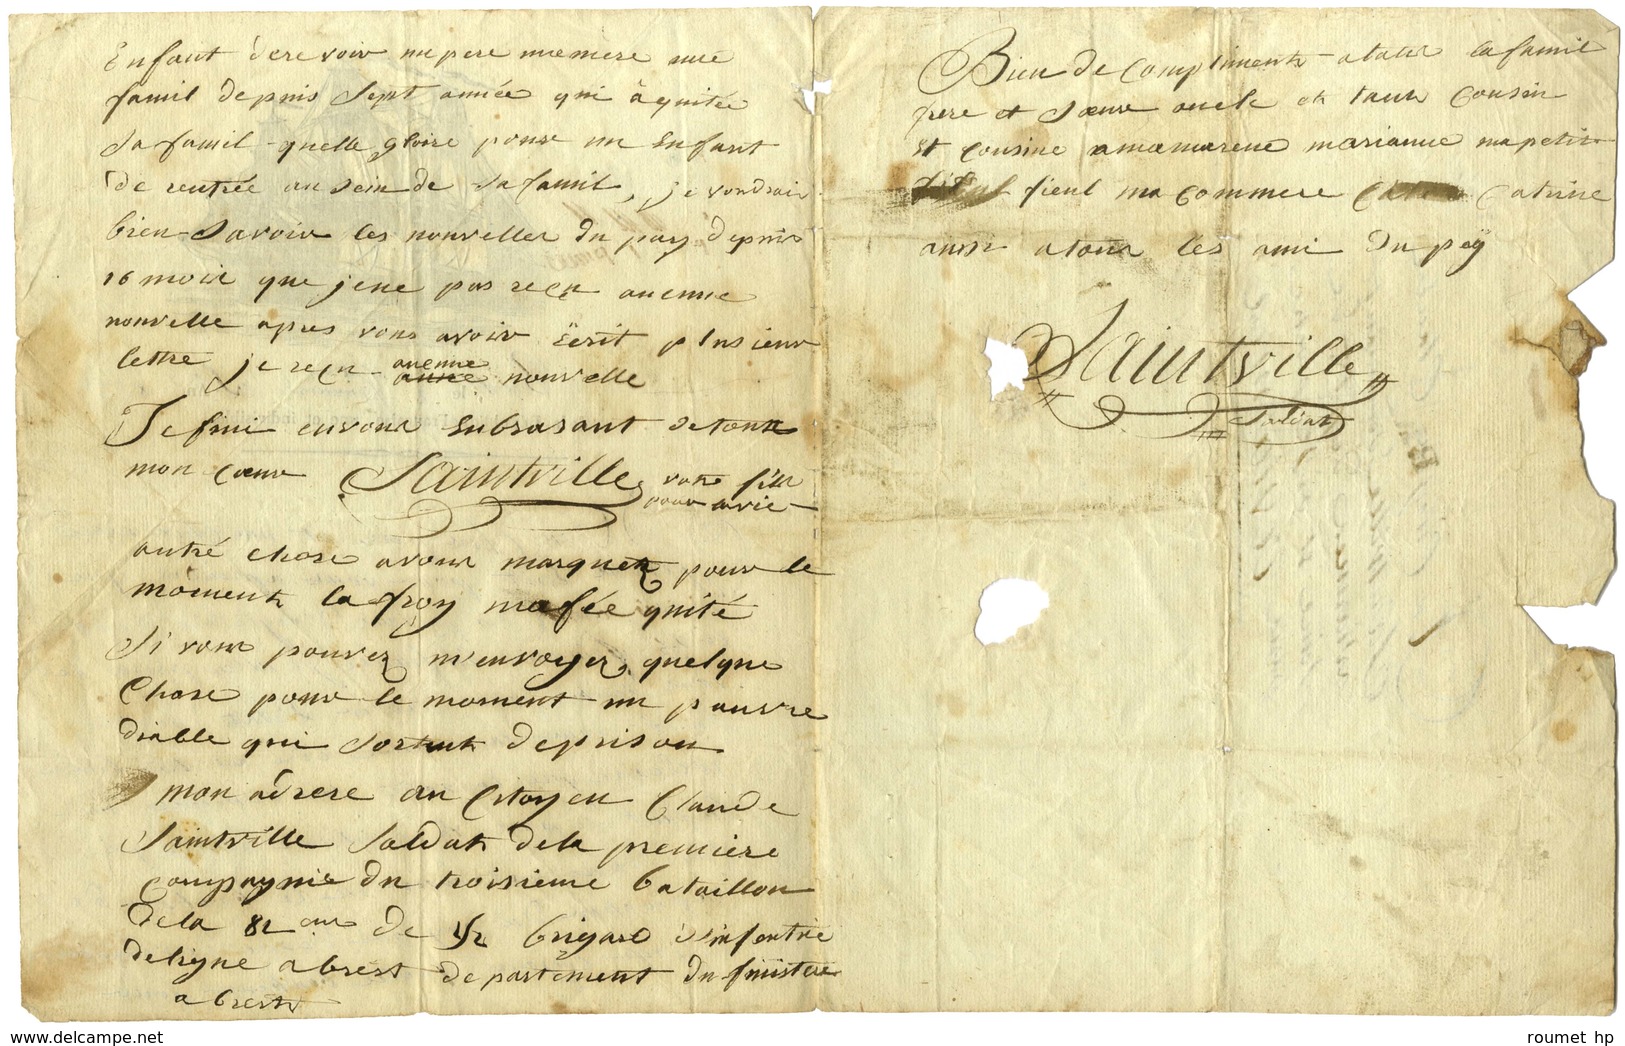 Enfant de revoir un pere une mere une
famil depuis Sept année qui à quitée
Sa famil quelle gloire pour un Enfant
de rentrée au sein de Sa famil, je voudrais
bien Savoir les nouvelles du pay depuis
16 mois que je ne pas reçu aucunne
nouvelle apres vous avoir Ecrit plusieur
lettre je reçu aucunne nouvelle
Je fini en vous Enbrasant de tout
mon Cœur Saintville votre fils
pour avie
autré chose a vous marquer pour le
moment la froy
Si vous pouvez m'envoyez quelque
Chose pour le moment un pauvre
diable qui Sortent de prison
mon adrese au Citoyen Claude
Saintville Soldat de la premiere
Compagnie du troisieme bataillon
de la 82 eme de 1/2 brigard d'infentrie
de ligne a brest departement du finistere
a brest
Bien de Compliment a toute la famil
frere et Sœur oncle et tante Cousin
Et Cousine a ma marene marianne ma petit
fieul ma Commere Catrine
aussi a tous les ami Du pay
Saintville
Soldat
www.delcampe.net
roumet hp